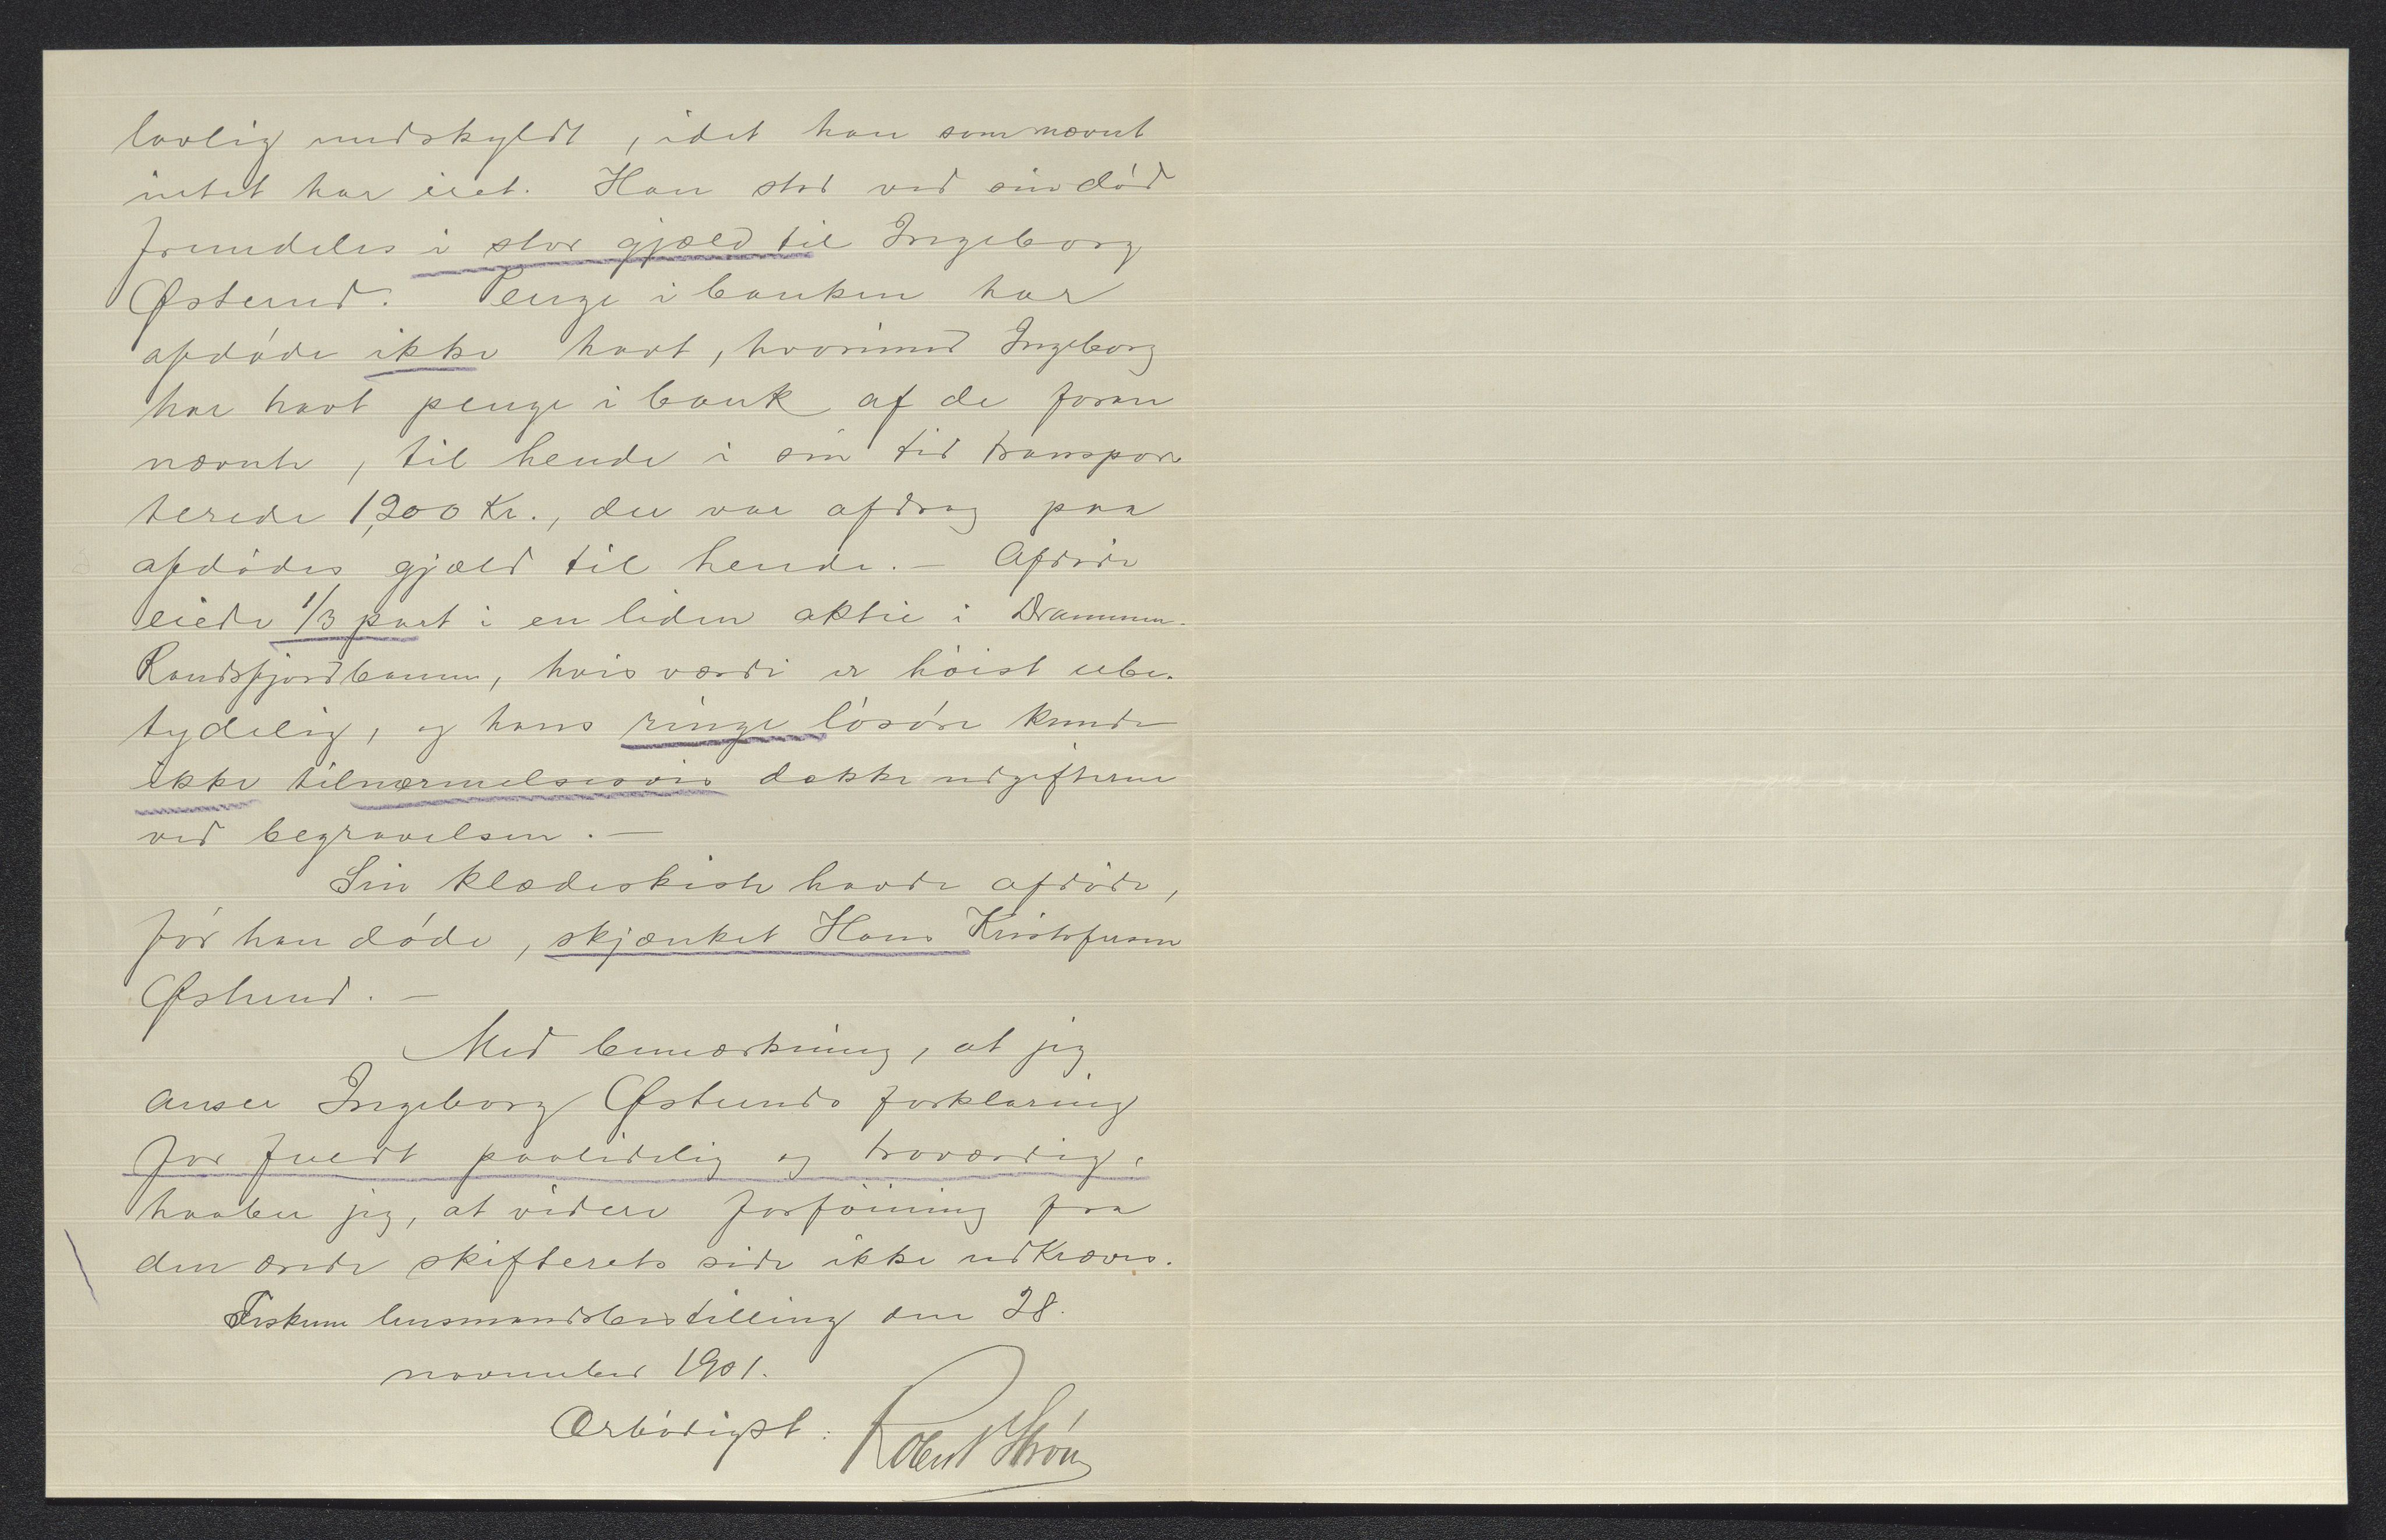 lovlig undskyldt, idet han som nævnt
intet har eiet. Han stod ved sin død
fremdeles i stor gjæld til Ingeborg
Østerud. Penge i banken har
afdøde ikke havt, hvorimod Ingeborg
har havt penge i bank af de foran
nævnte, til hende i sin tid transpor
terede 1,200 Kr., der var afdrag paa
afdødes gjæld til hende. — Afdøde
eiede 1/3 part i en liden aktie i Drammen-
Randsfjordbanen, hvis værdi er høist ube-
tydelig, og hans ringe løsøre kunde
ikke tilnærmelsesvis dække udgifterne
ved begravelsen. —
Sin klædeskiste havde afdøde,
før han døde, skjænket Hans Kristofersen
Østerud. —
Med bemærkning, at jeg
anser Ingeborg Østeruds forklaring
for fuldt paalidelig og troværdig,
haaber jeg, at videre forføining fra
den ærede skifterets side ikke udkræves.
Fiskum lensmandsbestilling den 28.
november 1901.
Ærbødigst: Robert Strøm